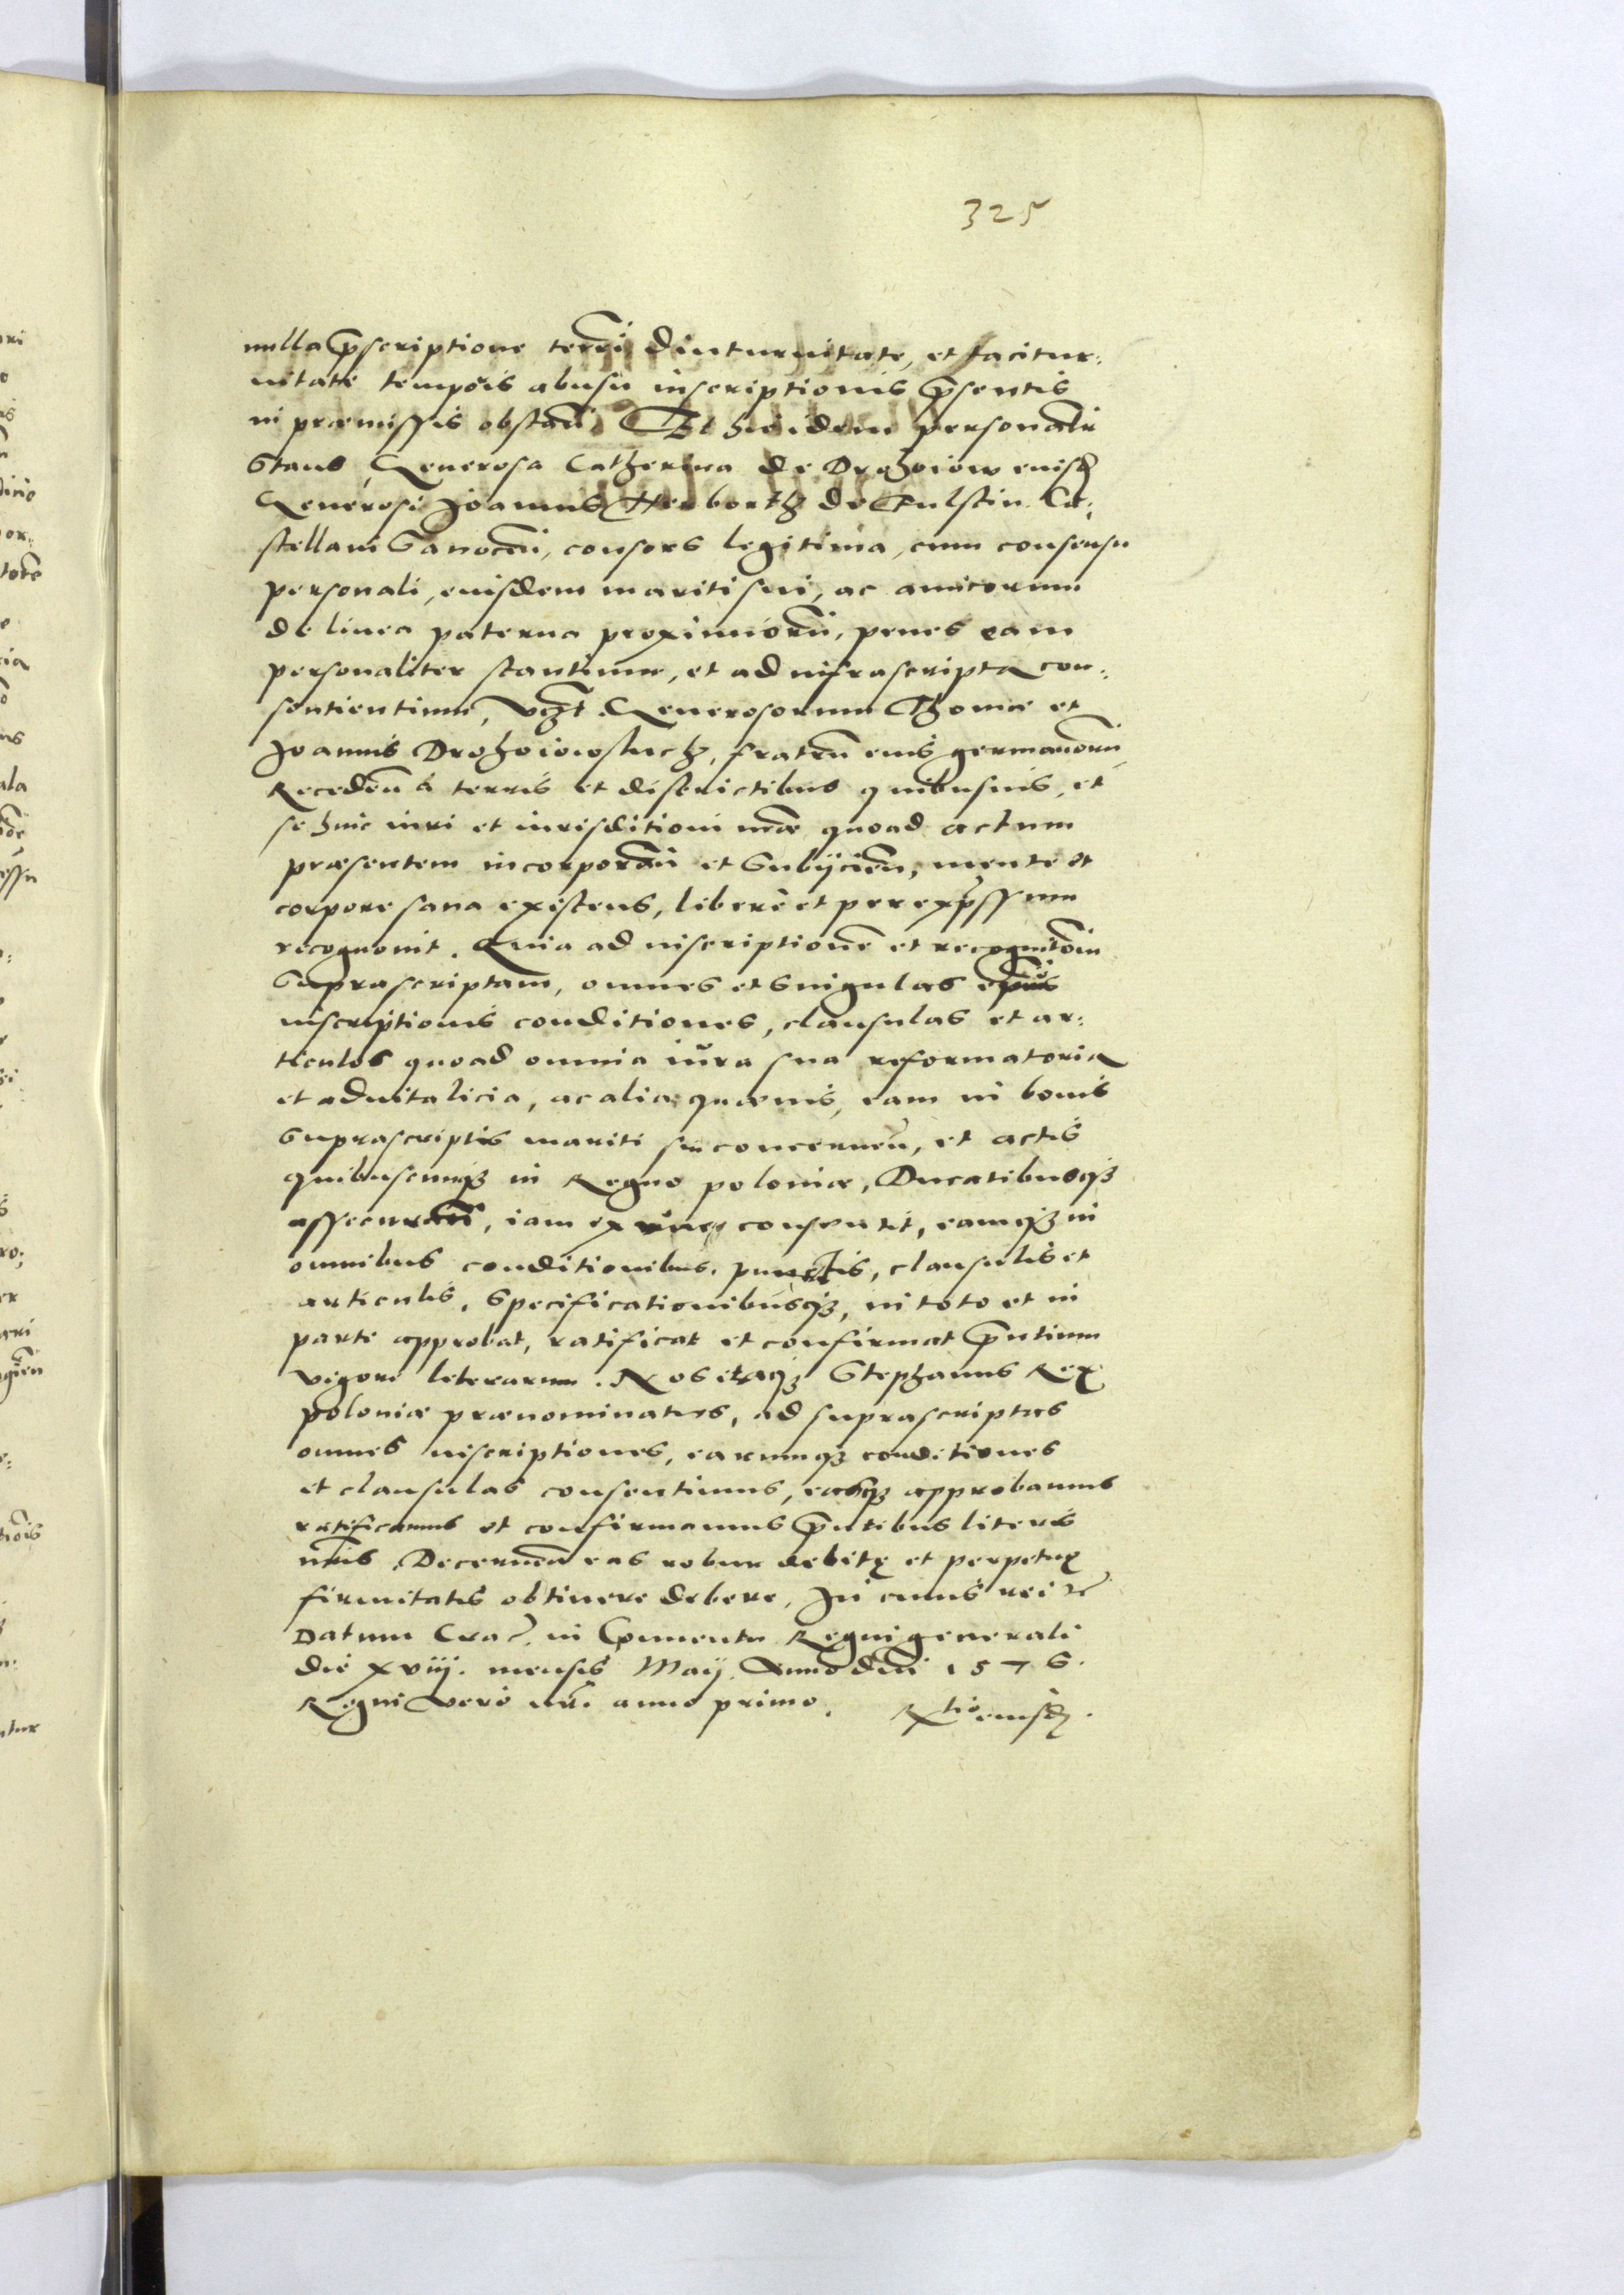 325
nulla p̃scriptione terrarũ diuturnitate, et tacitur:
nitate tempõis abusu inscriptionis p̃sentis
in præmissis obstañ. Et hic idem personalr̃
stans Generosa Catherina de Drohoiow eiusd
Generosi Joannis Herborth de Fulstin Ca:
stellani Sanoceñ, consors legitima, cum consensu
personali, eiusdem mariti sui, ac amicorum
de linea paterna proximiorũ, penes eam
personaliter stantium, et ad infrascripta con:
sentientium, vꝫt. Generosorum Thomæ et
Joannis Drohoiowskich, fratrũ eius germanorũ
Recedeñ à terris et districtibus quibusuis, et
se huic iuri et iurisditioni nr̃æ quoad actum
præsentem incorporañ et subijcieñ, mente et
corpore sana existens, liberè et per exp̃ssum
recognouit. Quia ad inscriptionẽ et recognitõem
suprascriptam, omnes et singulas
inscriptionis conditiones, clausulas et ar:
ticulos quoad omnia iura sua reformatoria
et aduitalicia, ac alia quæuis, eam in bonis
suprascriptis mariti sui concerneñ, et actis
quibuscunqꝫ in Regno poloniæ, Ducatibusqꝫ
assecurañ, iam ex nunc consentit, eamqꝫ in
omnibus conditionibus, punctis, clausulis et
articulis, specificationibusqꝫ, in toto et in
parte approbat, ratificat et confirmat p̃ntium
vigore literarum. Nos itaqꝫ Stephanus Rex
poloniæ prænominatus, ad suprascriptas
omnes inscriptiones, earumqꝫ conditiones
et clausulas consentimus, easqꝫ approbamus
ratificamus et confirmamus p̃ntibus literis
nr̃is. Decerneñ eas robur debitę et perpetuę
firmitatis obtinere debere. In cuius rei &c̃
Datum Crac̃. in Conuentu Regni generali
die xviij. mensis Maij Anno dñi 1576.
Regni vero nr̃i anno primo. Rtio eiusd.